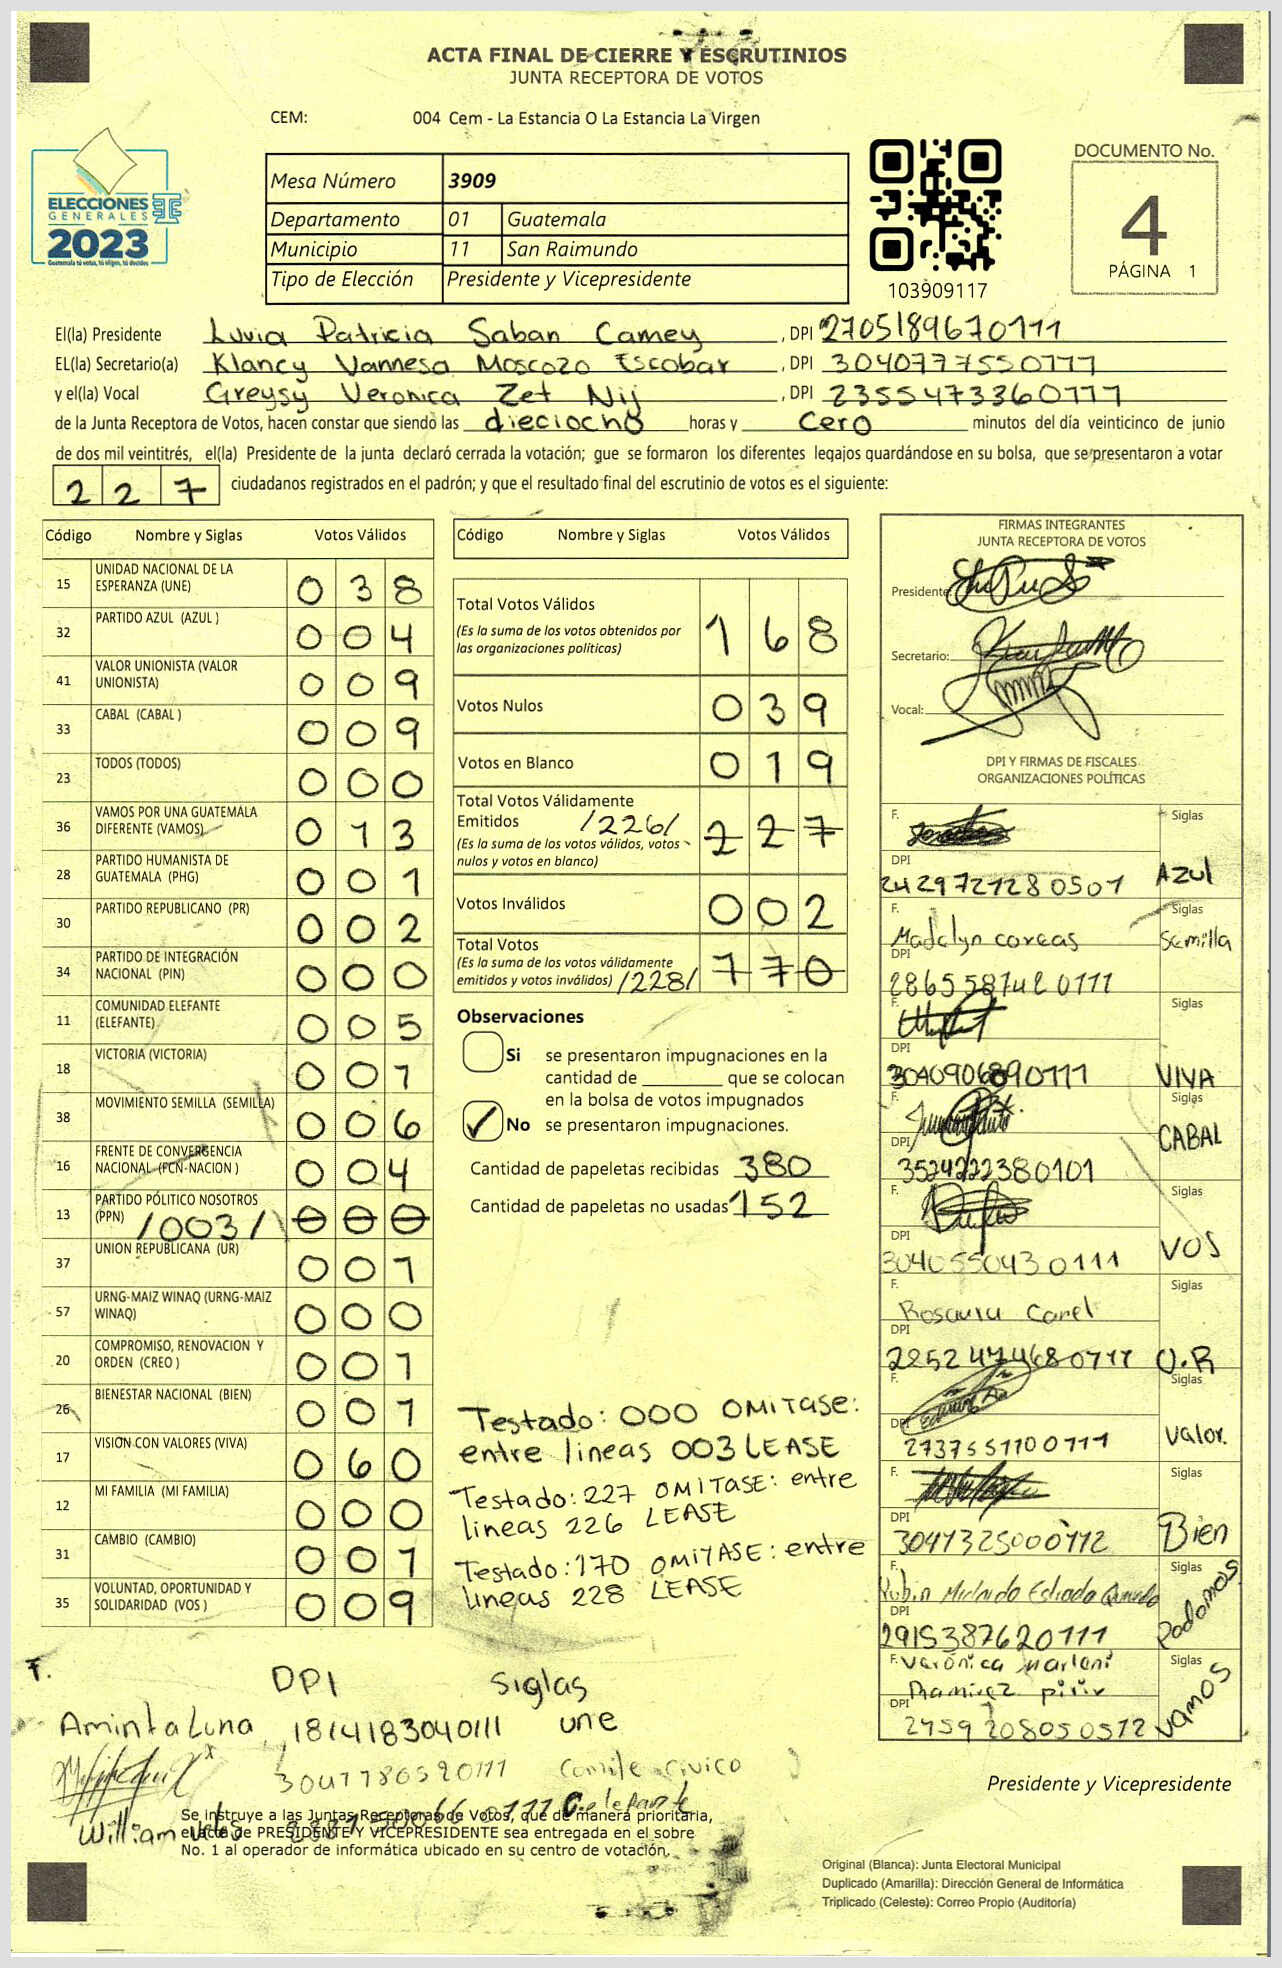 ACTA FINAL DE CIERRE Y ESCRUTINIOS
JUNTA RECEPTORA DE VOTOS
CEM: 004 Cem - La Estancia O La Estancia La Virgen
ELECCIONES
GENERALES
2023
Guatemala tú votas, tú eliges, tú decides
Mesa Número 3909
Departamento 01 Guatemala
Municipio 11 San Raimundo
Tipo de Elección Presidente y Vicepresidente
103909117
DOCUMENTO No.
4
PÁGINA 1
El(la) Presidente Luvia Patricia Saban Camey, DPI 2705189670111
EL(la) Secretario(a) Klancy Vannesa Moscozo Escobar, DPI 3040777550111
y el(la) Vocal Greysy Veronica Zet Nij, DPI 2355473360111
de la Junta Receptora de Votos, hacen constar que siendo las dieciocho horas y Cero minutos del día veinticinco de junio
de dos mil veintitrés, el(la) Presidente de la junta declaró cerrada la votación; que se formaron los diferentes legajos guardándose en su bolsa, que se presentaron a votar
227 ciudadanos registrados en el padrón; y que el resultado final del escrutinio de votos es el siguiente:
Código Nombre y Siglas Votos Válidos
15 UNIDAD NACIONAL DE LA ESPERANZA (UNE) 038
32 PARTIDO AZUL (AZUL ) 004
41 VALOR UNIONISTA (VALOR UNIONISTA) 009
33 CABAL (CABAL ) 009
23 TODOS (TODOS) 000
36 VAMOS POR UNA GUATEMALA DIFERENTE (VAMOS) 013
28 PARTIDO HUMANISTA DE GUATEMALA (PHG) 001
30 PARTIDO REPUBLICANO (PR) 002
34 PARTIDO DE INTEGRACIÓN NACIONAL (PIN) 000
11 COMUNIDAD ELEFANTE (ELEFANTE) 005
18 VICTORIA (VICTORIA) 001
38 MOVIMIENTO SEMILLA (SEMILLA) 006
16 FRENTE DE CONVERGENCIA NACIONAL (FCN-NACION ) 004
13 PARTIDO PÓLITICO NOSOTROS (PPN) /003/ 000
37 UNION REPUBLICANA (UR) 001
57 URNG-MAIZ WINAQ (URNG-MAIZ WINAQ) 000
20 COMPROMISO, RENOVACION Y ORDEN (CREO ) 001
26 BIENESTAR NACIONAL (BIEN) 001
17 VISION CON VALORES (VIVA) 060
12 MI FAMILIA (MI FAMILIA) 000
31 CAMBIO (CAMBIO) 001
35 VOLUNTAD, OPORTUNIDAD Y SOLIDARIDAD (VOS ) 009
Código Nombre y Siglas Votos Válidos
Total Votos Válidos 168
(Es la suma de los votos obtenidos por
las organizaciones politicas)
Votos Nulos 039
Votos en Blanco 019
Total Votos Válidamente
Emitidos /226/ 227
(Es la suma de los votos válidos, votos
nulos y votos en blanco)
Votos Inválidos 002
Total Votos
(Es la suma de los votos válidamente
emitidos y votos inválidos) /228/ 170
Observaciones
Si se presentaron impugnaciones en la
cantidad de ________ que se colocan
en la bolsa de votos impugnados
✓ No se presentaron impugnaciones.
Cantidad de papeletas recibidas 380
Cantidad de papeletas no usadas 152
Testado: 000 OMITASE:
entre lineas 003 LEASE
Testado: 227 OMITASE: entre
lineas 226 LEASE
Testado: 170 OMITASE: entre
lineas 228 LEASE
FIRMAS INTEGRANTES
JUNTA RECEPTORA DE VOTOS
Presidente:
Secretario:
Vocal:
DPI Y FIRMAS DE FISCALES
ORGANIZACIONES POLÍTICAS
F. Siglas
DPI 2429721280501 Azul
F. Madelyn coreas Siglas Semilla
DPI 2865587420111
F. Siglas
DPI 3040906890111 VIVA
F. Siglas CABAL
DPI 3524222380101
F. Siglas
DPI 3040550430111 VOS
F. Siglas
DPI 2252474680711 U.R
F. Siglas
DPI 2737551100111 Valor.
F. Siglas
DPI 3041325000112 Bien
F. Siglas Podemos
DPI 2915387620111
F. Verónica Marleni Siglas Vamos
Ramirez pirir
DPI 2459208050512
F. DPI Siglas
Aminta Luna 1814183040111 une
3041780520111 Comite civico
William elefante
Se instruye a las Juntas Receptoras de Votos, que de manera prioritaria,
el acta de PRESIDENTE Y VICEPRESIDENTE sea entregada en el sobre
No. 1 al operador de informática ubicado en su centro de votación.
Presidente y Vicepresidente
Original (Blanca): Junta Electoral Municipal
Duplicado (Amarilla): Dirección General de Informática
Triplicado (Celeste): Correo Propio (Auditoría)